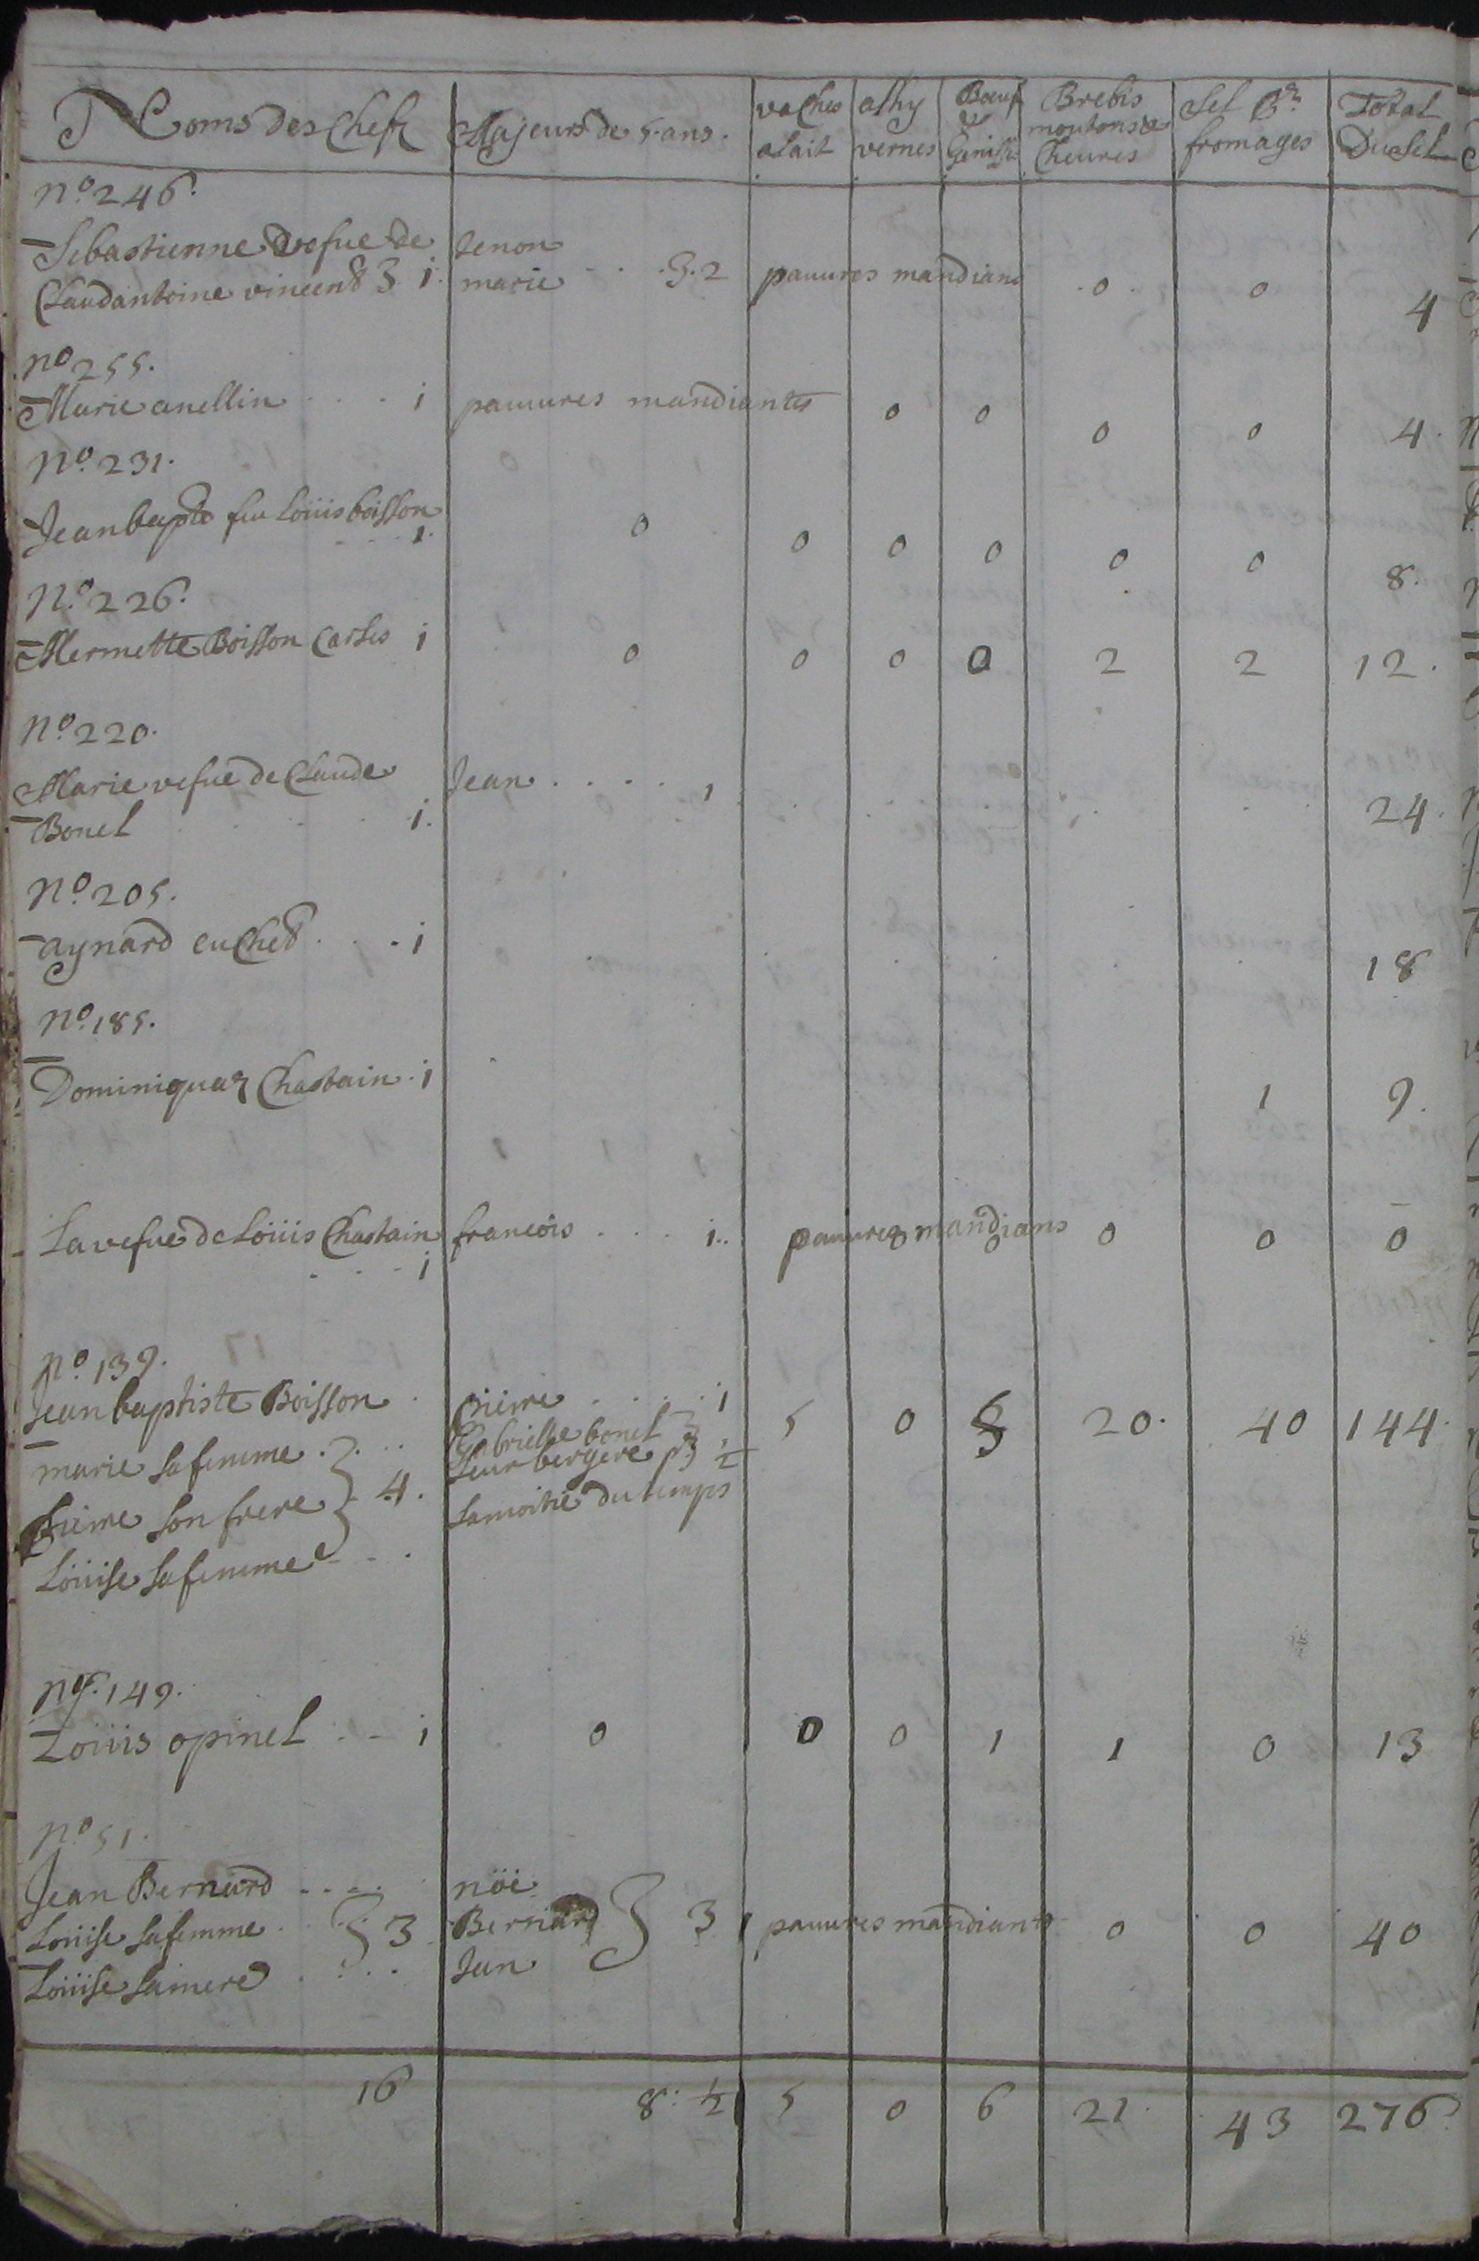 Noms des Chefz Majeurs de 5 ans. vaches alait athy vernes Boeufz & Genisses Brebis moutons & Cheures Sel pr fromages Total Du Sel
No 246.
Sebastienne vefue de Jenon
Claudantoine vincent 3 i. marie 3. 2 pauures mandians 0 0 4
No 255.
Marie anellin i pauures mandiantes 0 0 0 0 4.
No 231.
Jean bapte feu Loüis boisson
1. 0 0 0 0 0 0 8.
No 226.
Mermette Boisson Carles i 0 0 0 0 2 2 12.
No 220.
Marie vefue de Claude Jean 1
Bonel i. 24.
No 205.
aynard cuChet i 18
No 185.
Dominique Chastain i 1 9.
La vefue de Loüis Chastain francois i.. pauures mandians 0 0 0
i
No 139.
Jean baptiste Boisson pierre i 5 0 5 20. 40 144.
marie sa femme Gabrielle bonel
pierre son frere } 4. leur bergere pr ½
Loüise sa femme la moitié du temps
No 149.
Loüis opinel i 0 0 0 1 1 0 13
No 51.
Jean Bernard nöé
Loüise sa femme } 3 Bernard } 3 pauures mandiants 0 0 40
Loüise sa mere Jean
16 8. ½ 5 0 6 21 43 276